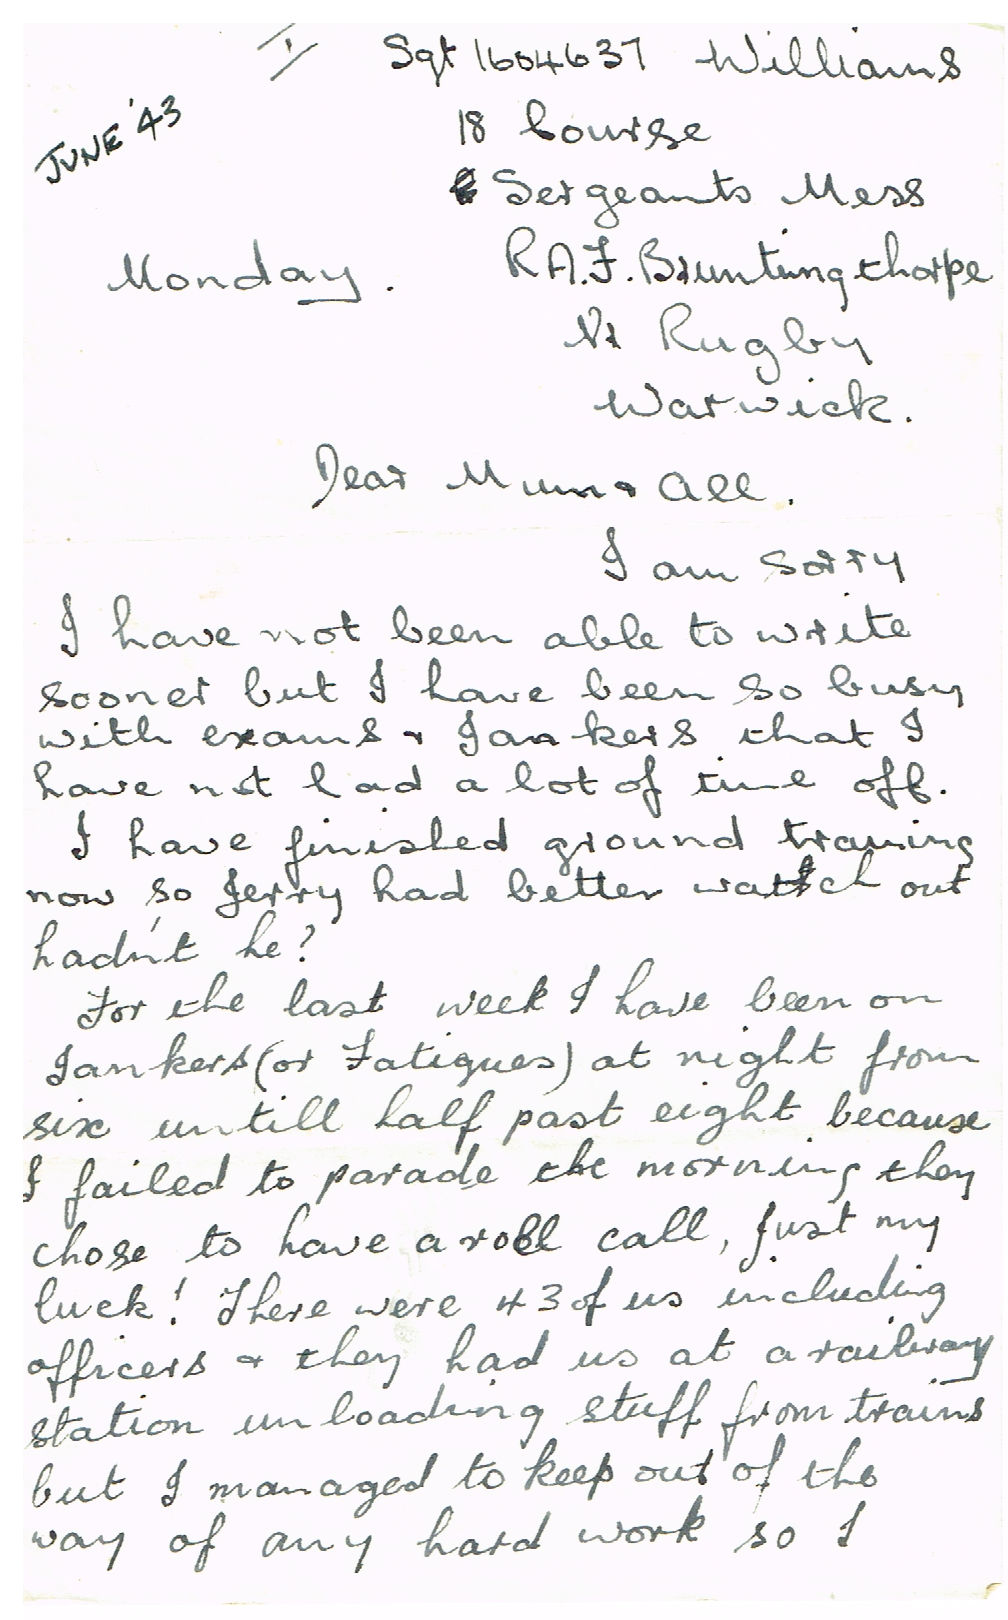 1
Sgt 1604637 Williams
JUNE '43
18 Course
Sergeants Mess
Monday. R.A.F. Bruntingthorpe
Nr Rugby
Warwick.
Dear Mum & All.
I am sorry
I have not been able to write
sooner but I have been so busy
with exams & Jankers that I
have not had a lot of time off.
I have finished ground training
now so Jerry had better watch out
hadn't he?
For the last week I have been on
Jankers (or Fatigues) at night from
six untill half past eight because
I failed to parade the morning they
chose to have a roll call, just my
luck! There were 43 of us including
officers & they had us at a railway
station unloading stuff from trains
but I managed to keep out of the
way of any hard work so I